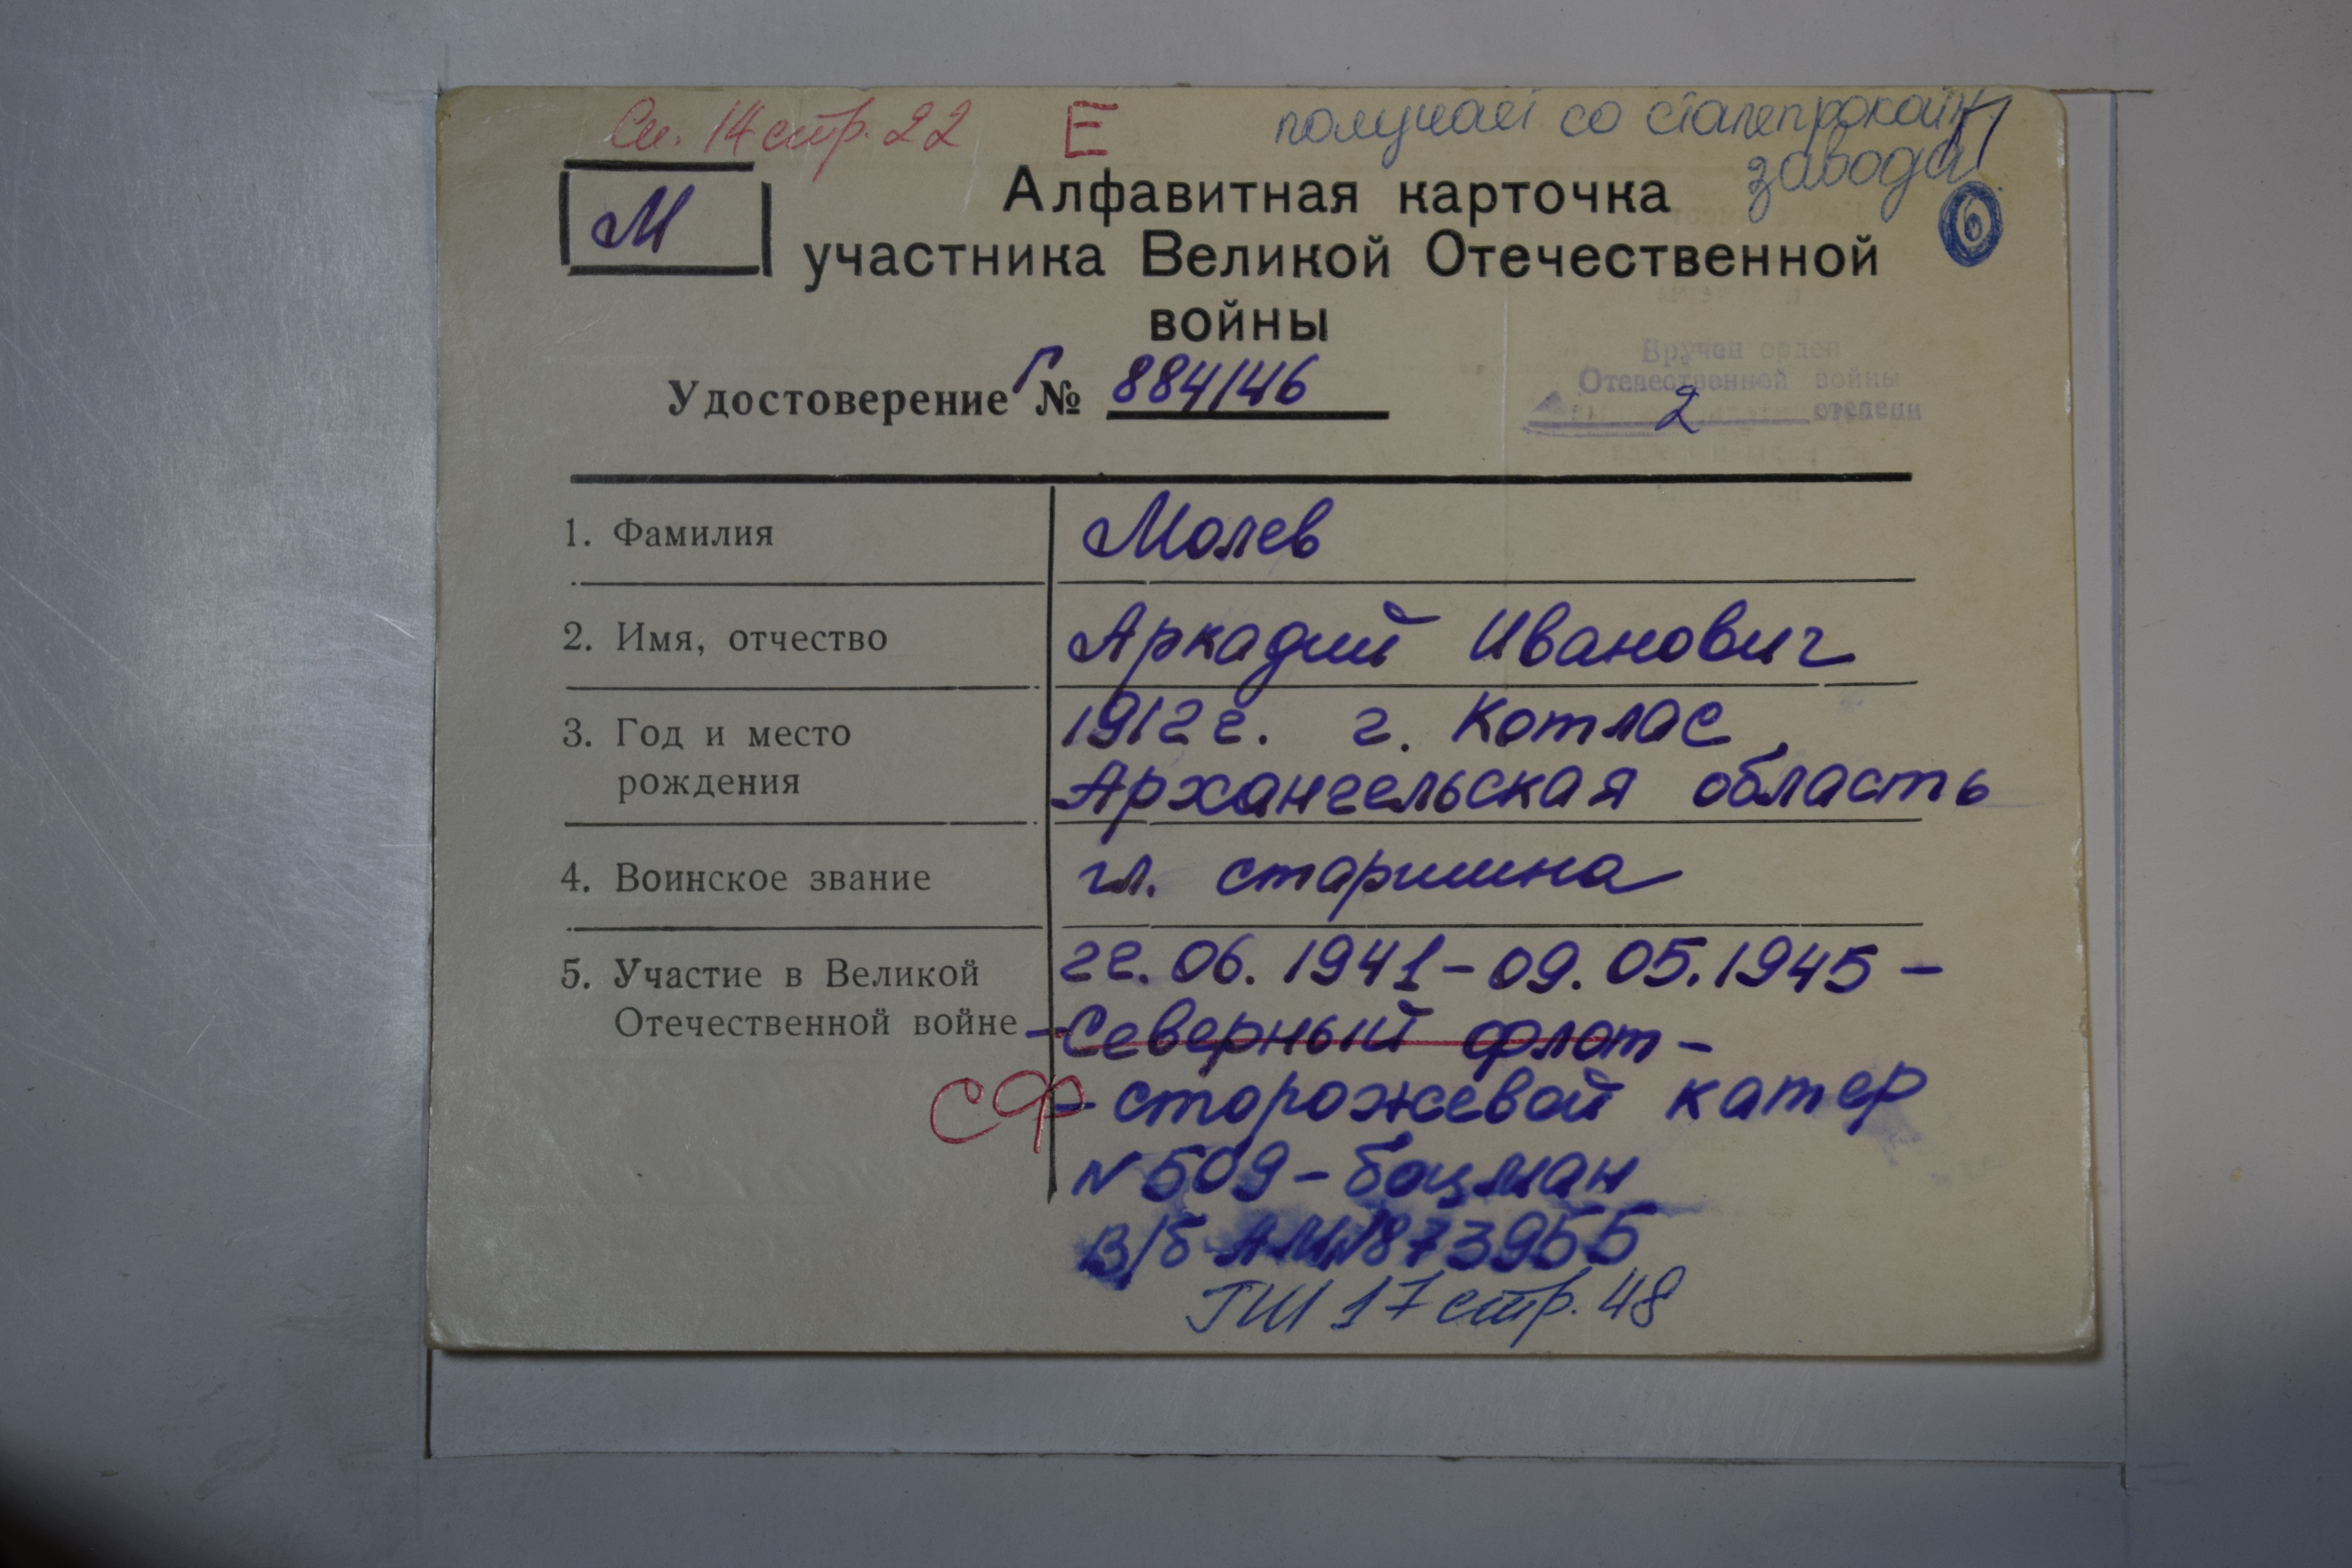 Сп. 14 стр. 22 Е получает со сталепрокатн
завода
М
6
Алфавитная карточка
участника Великой Отечественной
войны
Удостоверение Г № 884146
Вручен орден
Отечественной войны
2 степени
1. Фамилия Молев
2. Имя, отчество Аркадий Иванович
3. Год и место 1912 г. г. Котлас,
рождения Архангельская область
4. Воинское звание гл. старшина
5. Участие в Великой 22.06.1941-09.05.1945-
Отечественной войне -Северный флот-
СФ - сторожевой катер
№ 509-боцман
В/б 1873955
ГШ 17 стр. 48